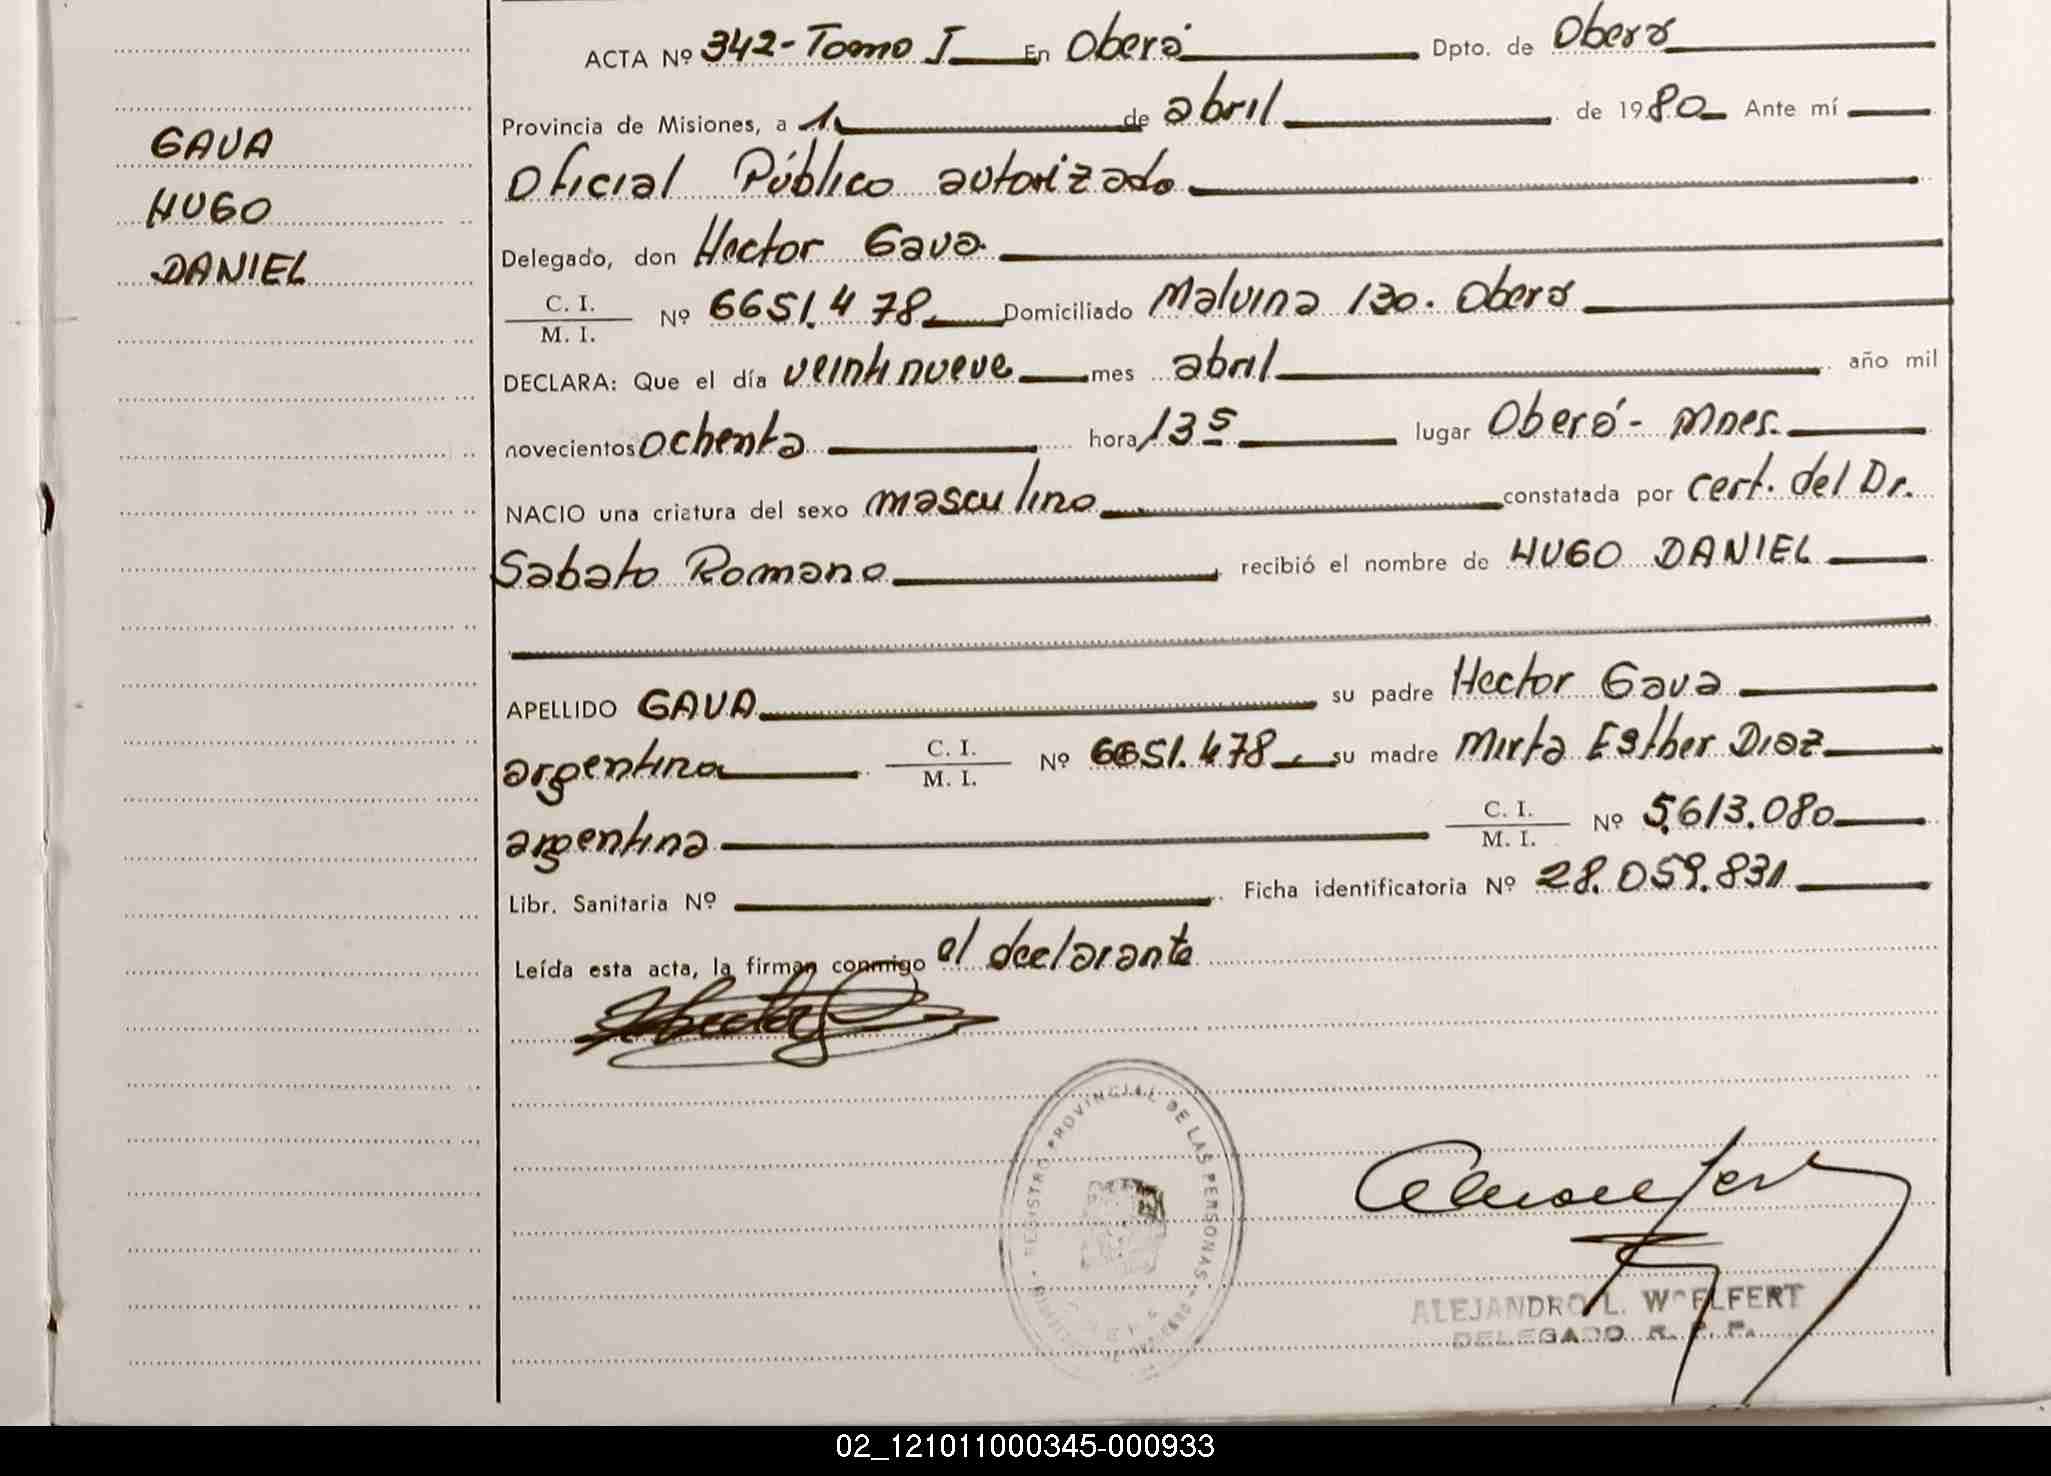 ACTA Nº 342-Tomo I En Oberá Dpto. de Oberá
Provincia de Misiones, a 1 de abril de 1980 Ante mí
GAVA
Oficial Público autorizado
HUGO
Delegado, don Hector Gava
DANIEL
C. I.
M. I. Nº 6651.478 Domiciliado Malvina 130. Oberá
DECLARA: Que el día veintinueve mes abril año mil
novecientos ochenta hora 13 5 lugar Oberá - Mnes.
NACIO una criatura del sexo masculino constatada por cert. del Dr.
Sabato Romano recibió el nombre de HUGO DANIEL
APELLIDO GAVA su padre Hector Gava
argentina C. I. M. I. Nº 6651.478 su madre Mirta Esther Diaz
argentina C. I. M. I. Nº 5.613.080
Libr. Sanitaria Nº Ficha identificatoria Nº 28.059.831
Leída esta acta, la firman conmigo el declarante
REGISTRO PROVINCIAL DE LAS PERSONAS
ALEJANDRO L. WOELFERT
DELEGADO R. P. P.
02_121011000345-000933